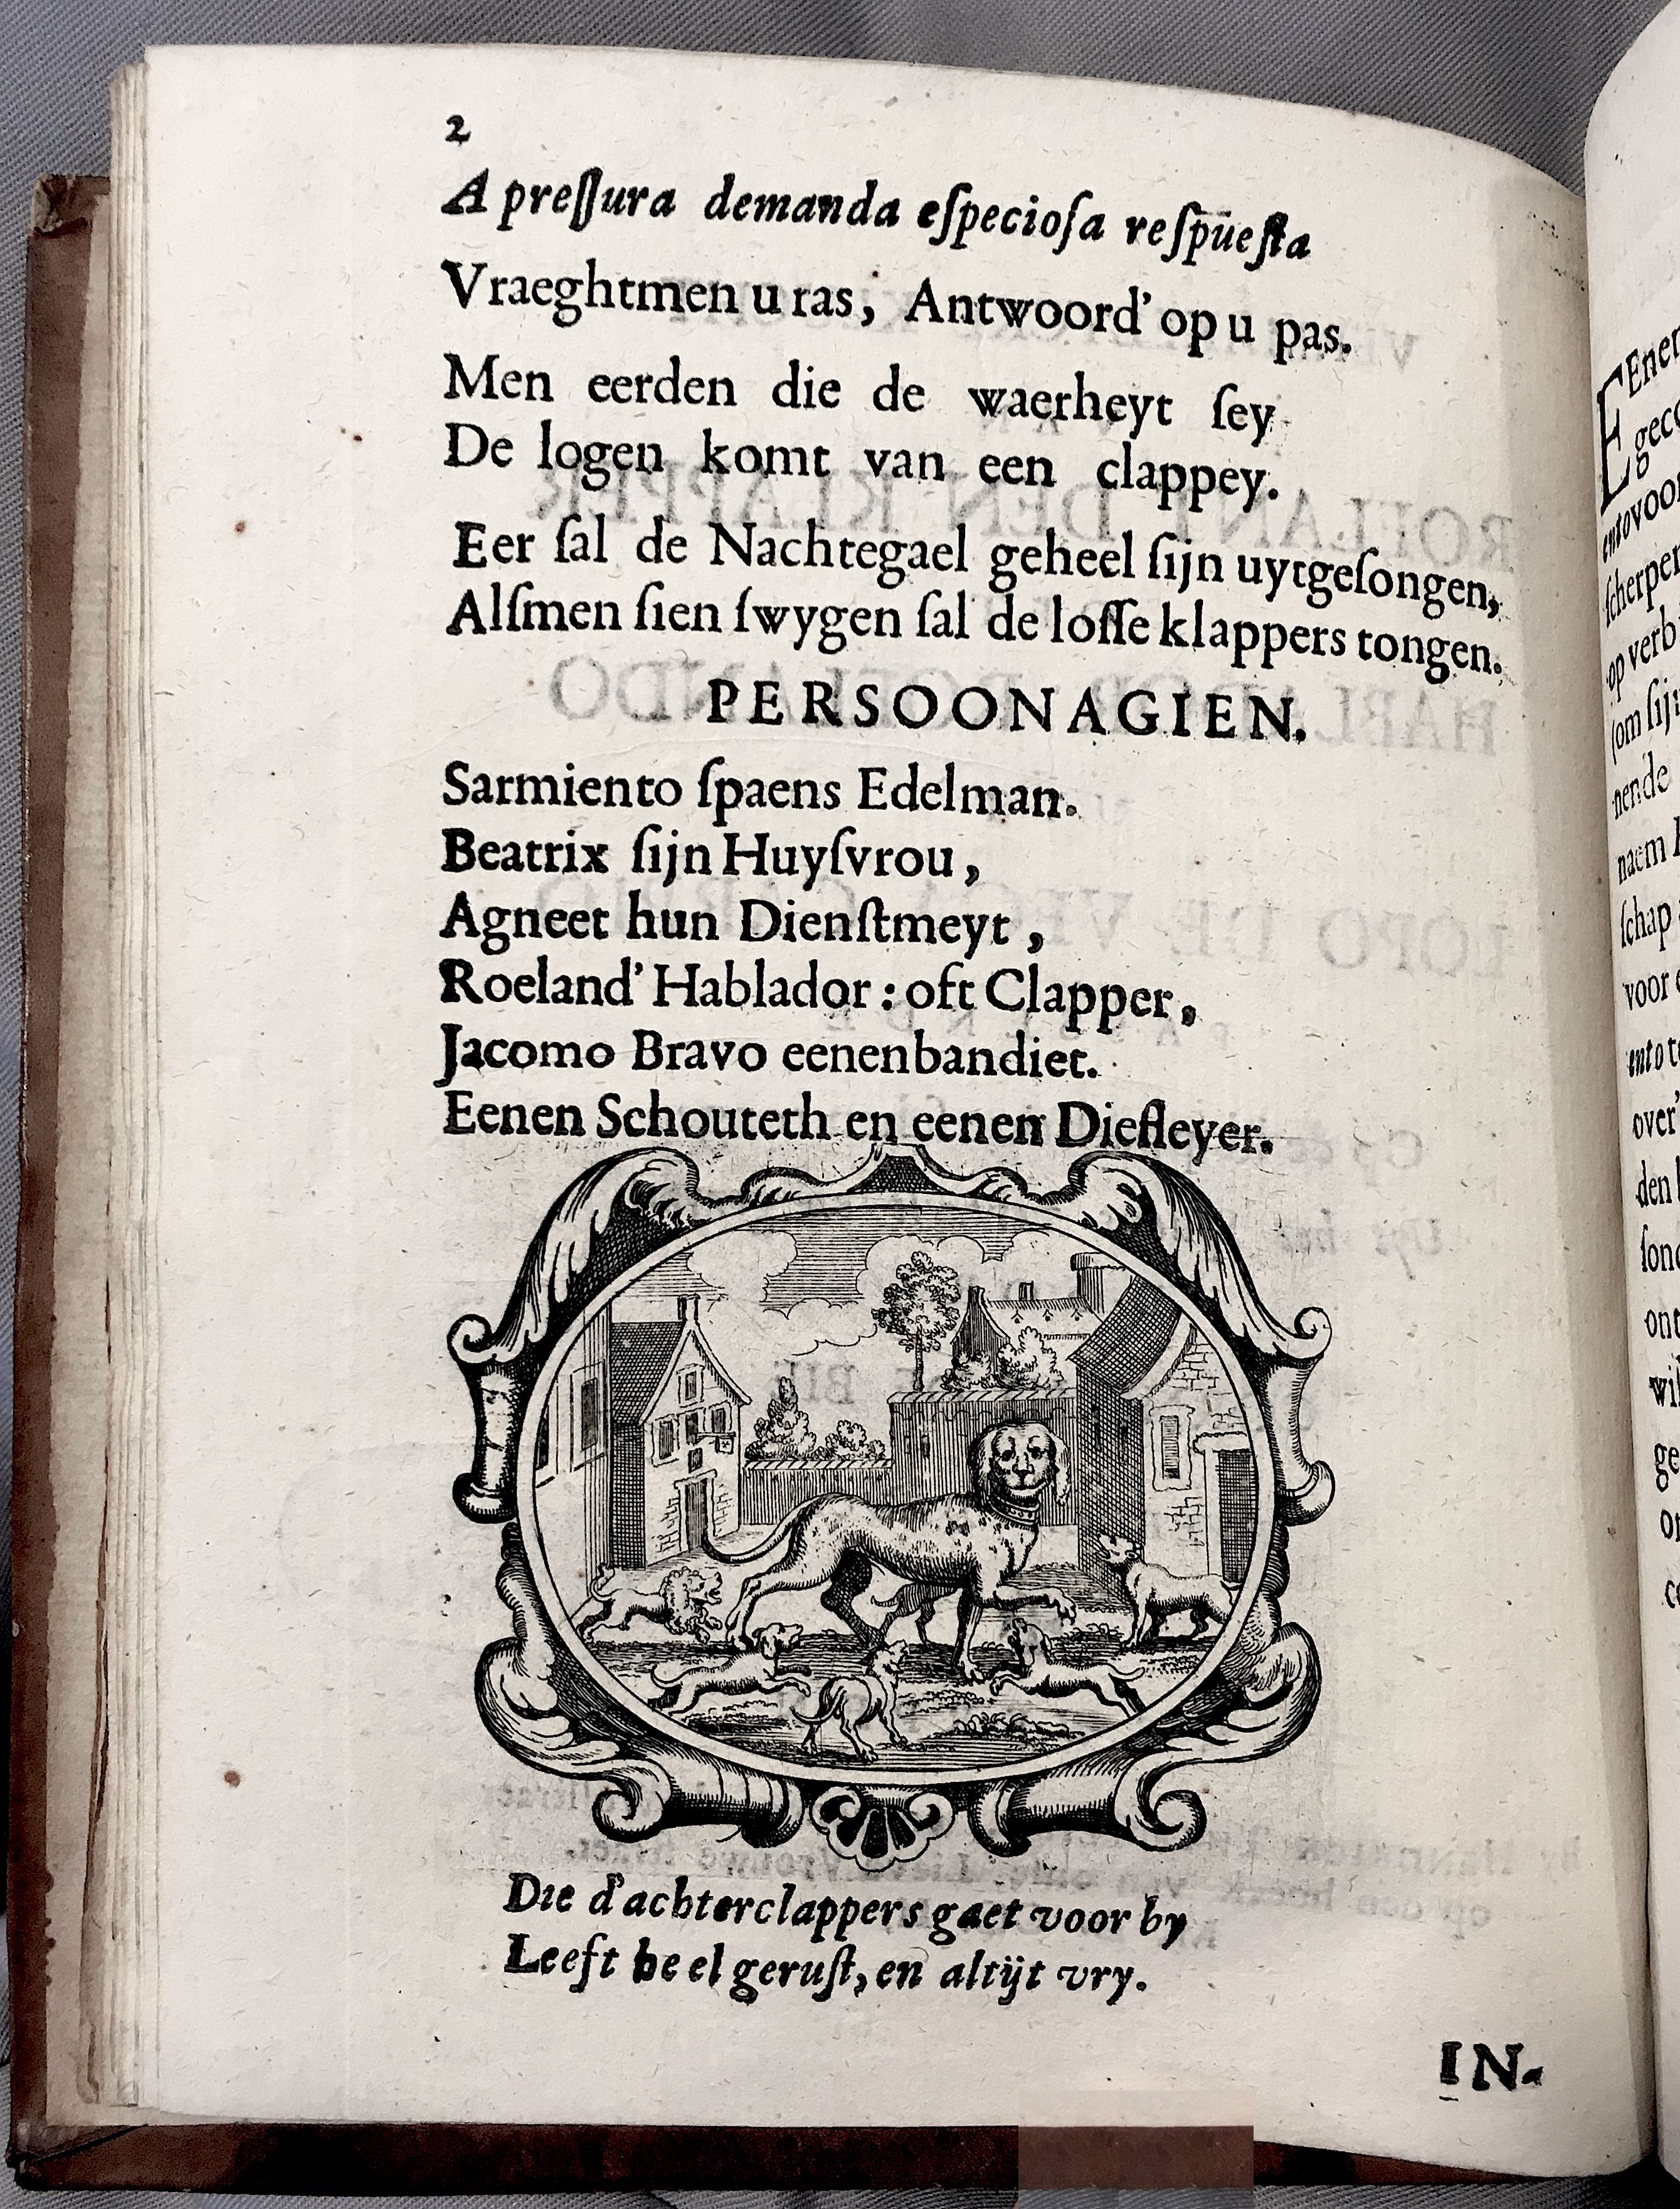 2
A preſſura demanda eſpecioſa reſpueſta
Vraeghtmen u ras, Antwoord' op u pas.
Men eerden die de waerheyt ſey
De logen komt van een clappey.
Eer ſal de Nachtegael geheel ſijn uytgeſongen,
Alſmen ſien ſwygen ſal de loſſe klappers tongen.
PERSOONAGIEN.
Sarmiento ſpaens Edelman.
Beatrix ſijn Huyſvrou,
Agneet hun Dienſtmeyt,
Roeland' Hablador: oft Clapper,
Jacomo Bravo eenenbandiet.
Eenen Schouteth en eenen Diefleyer.
Die d'achterclappers gaet voor by
Leeft heel geruſt, en altijt vry.
IN-